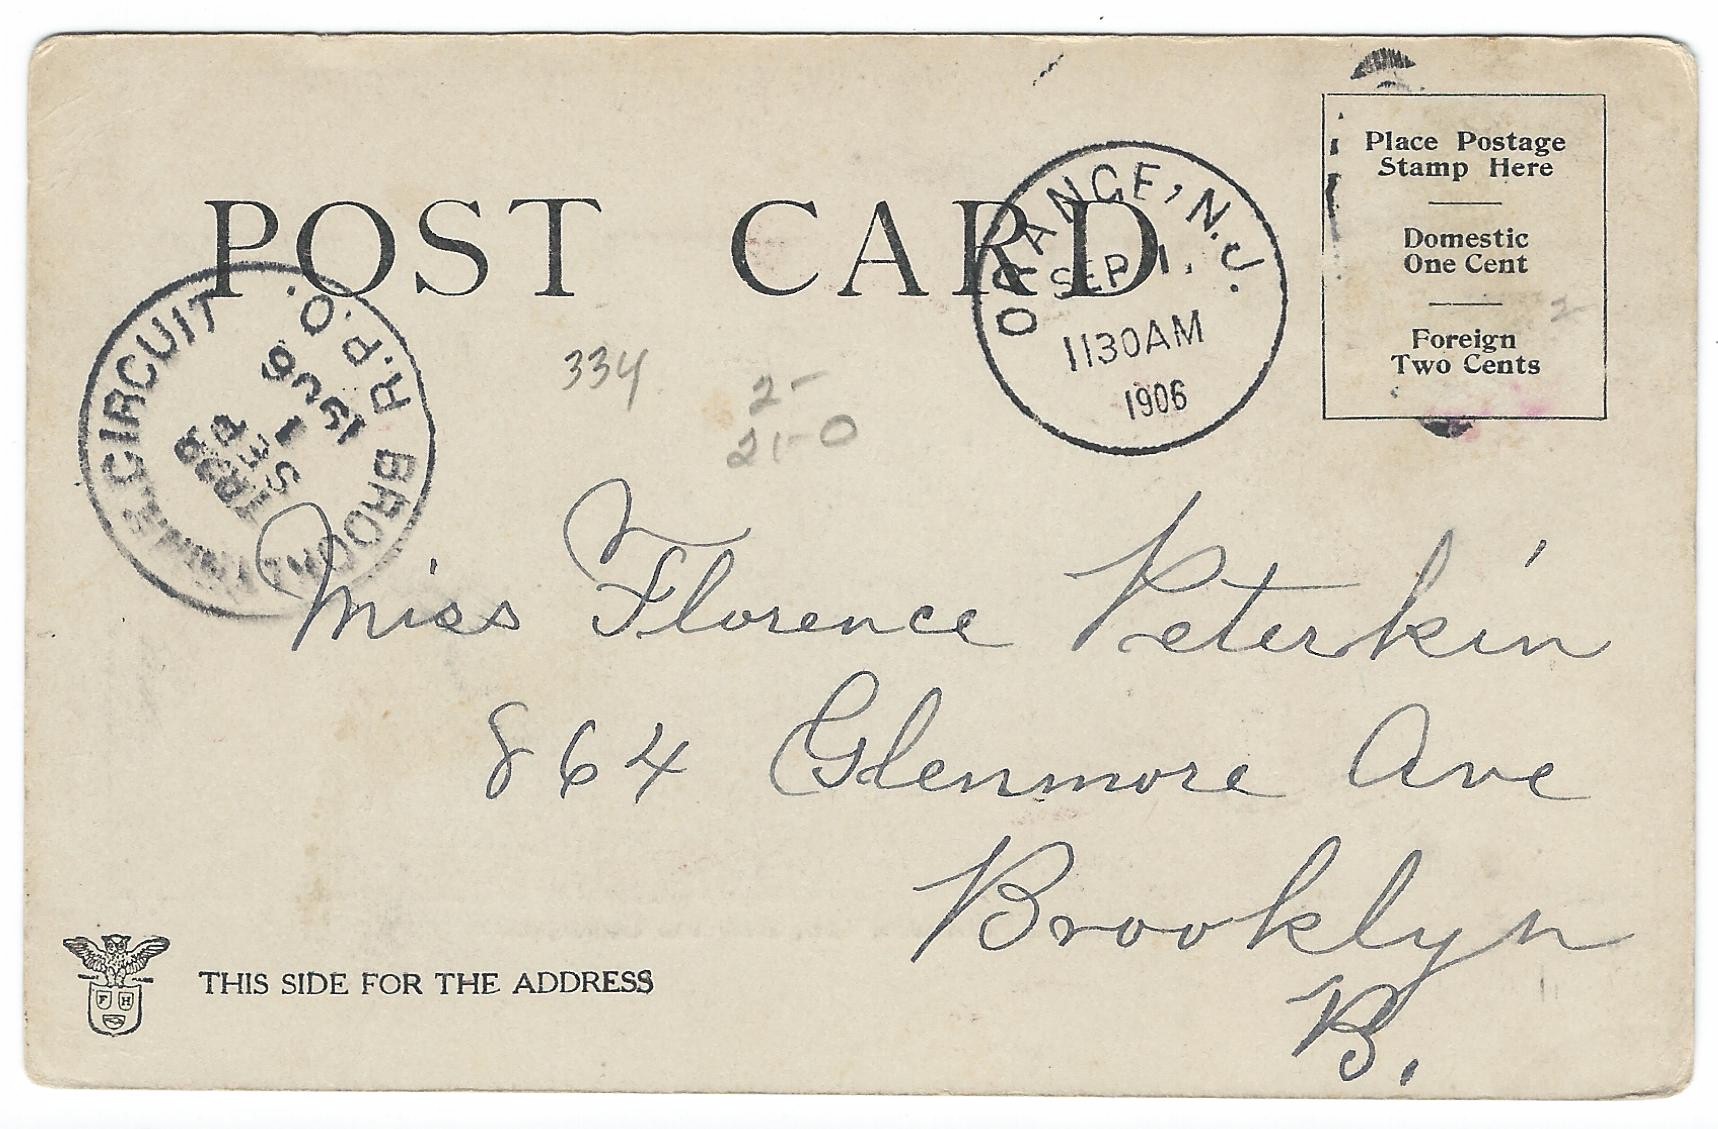 POST CARD
ORANGE, N.J.
SEP 1.
1130AM
1906
Place Postage
Stamp Here
Domestic
One Cent
Foreign
Two Cents
2
CIRCUIT
R.P.O.
BROOKLYN
SEP
1
1906
334
2-
21-0
Miss Florence Peterkin
864 Glenmore Ave
Brooklyn
B.
F H
THIS SIDE FOR THE ADDRESS